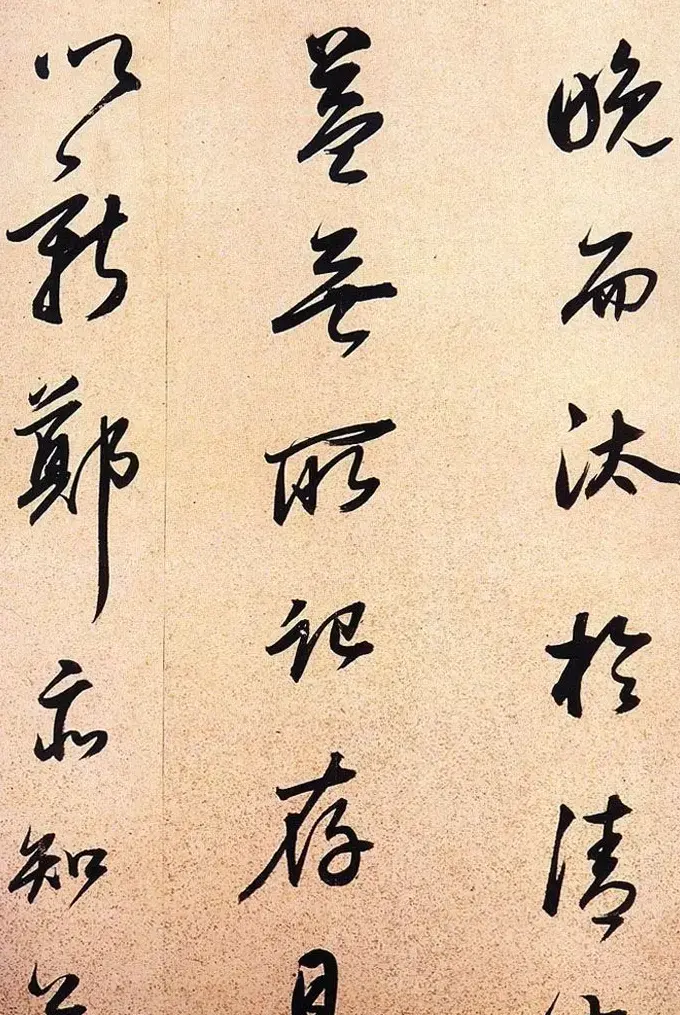 晚而汰於清
蓋無所記存
以新鄭亦知